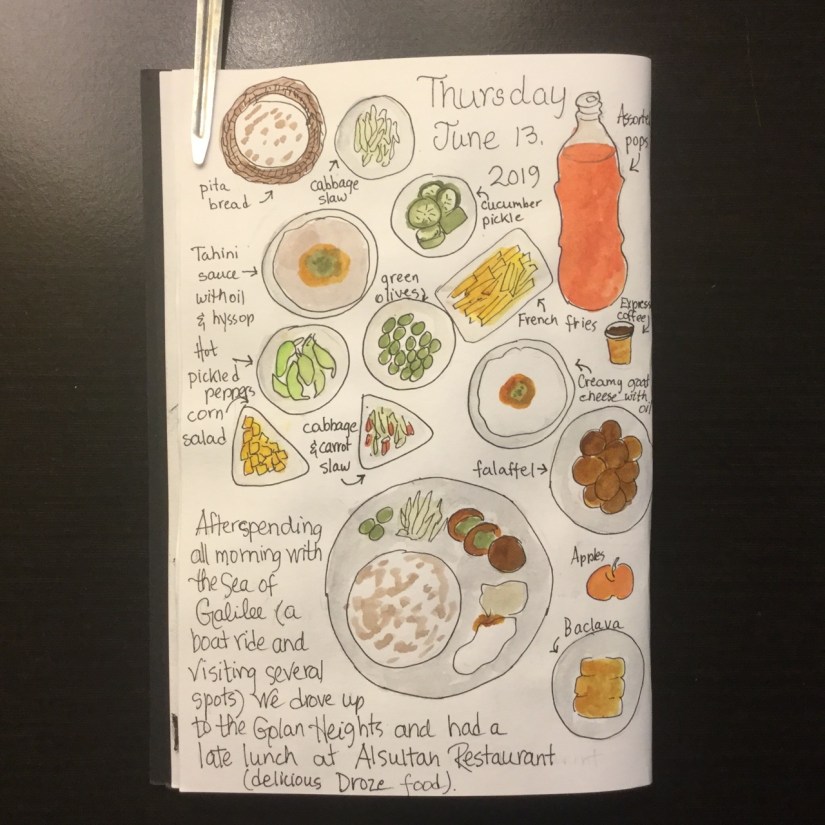 Thursday
June 13.
2019
Assorted
pops
pita
bread
cabbage
slaw
cucumber
pickle
Tahini
sauce
with oil
& hyssop
green
olives
French fries
Express
coffee
Hot
pickled
peppers
Creamy goat
cheese with
oil
corn
salad
cabbage
& carrot
slaw
falaffel
Apples
Baclava
After spending
all morning with
the Sea of
Galilee (a
boat ride and
visiting several
spots) We drove up
to the Golan Heights and had a
late lunch at Alsultan Restaurant
(delicious Droze food).